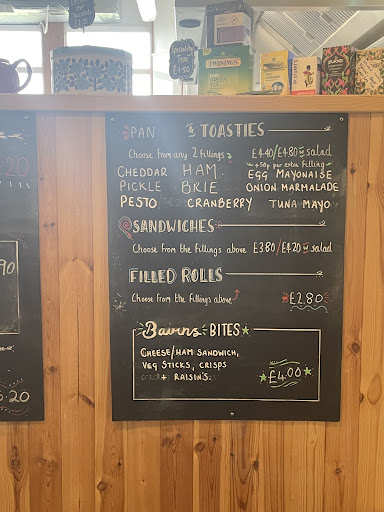 Speciality
Teas
£1.50
TWININGS
pukka
PAN & TOASTIES
Choose from any 2 fillings £4.40/£4.80 w salad
+50p per extra filling
CHEDDAR HAM. EGG MAYONAISE
PICKLE BRIE ONION MARMALADE
PESTO CRANBERRY TUNA MAYO
SANDWICHES
Choose from the fillings above £3.80/£4.20 w salad
FILLED ROLLS
Choose from the fillings above £2.80
Bairns BITES
CHEESE/HAM SANDWICH,
VEG STICKS, CRISPS
+ RAISIN'S
£4.00
.20
90
.20